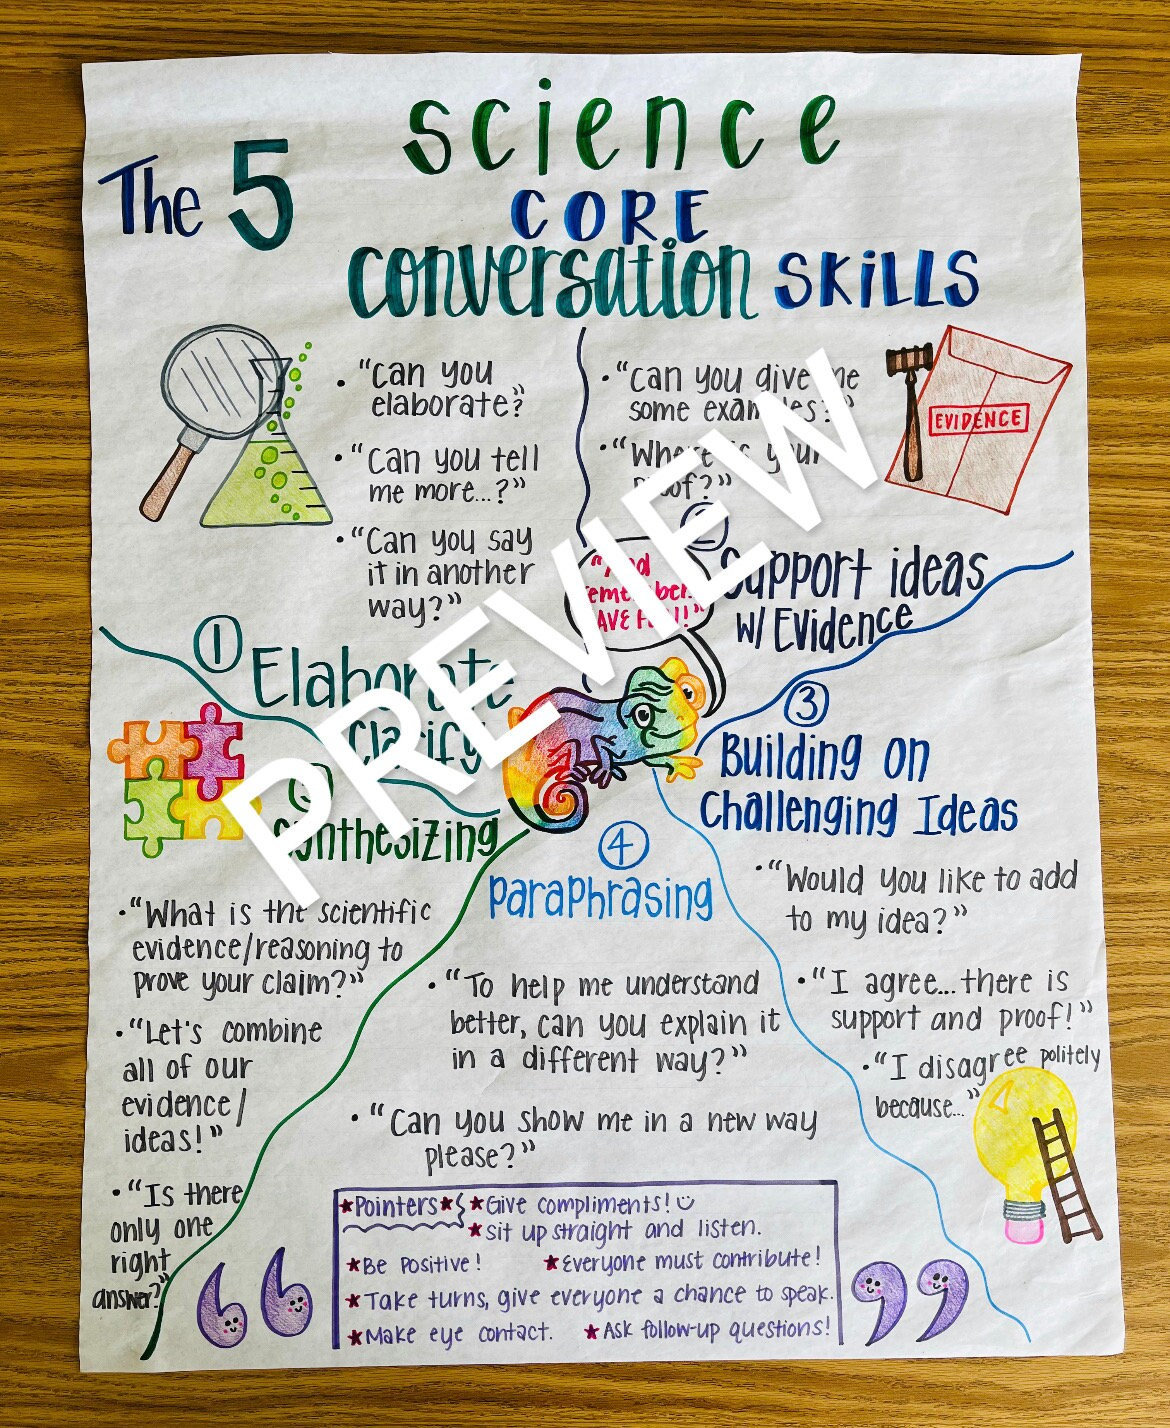 science
The 5
CORE
conversation SKILLS
• "Can you
elaborate?"
• "Can you tell
me more...?"
• "Can you say
it in another
way?"
① Elaborate
Clarify
• "Can you give me
some examples?"
• "Where is your
proof?"
EVIDENCE
Support ideas
w/ Evidence
"And
remember
HAVE FUN!"
③
Building on
Challenging Ideas
• "Would you like to add
to my idea?"
• "I agree...there is
support and proof!"
• "I disagree politely
because..."
④
Paraphrasing
• "To help me understand
better, can you explain it
in a different way?"
• "Can you show me in a new way
please?"
Synthesizing
• "What is the scientific
evidence/reasoning to
prove your claim?"
• "Let's combine
all of our
evidence/
ideas!"
• "Is there
only one
right
answer?"
★Pointers★ ★Give compliments!
★sit up straight and listen.
★Be Positive! ★Everyone must contribute!
★Take turns, give everyone a chance to speak.
★Make eye contact. ★Ask follow-up questions!
PREVIEW